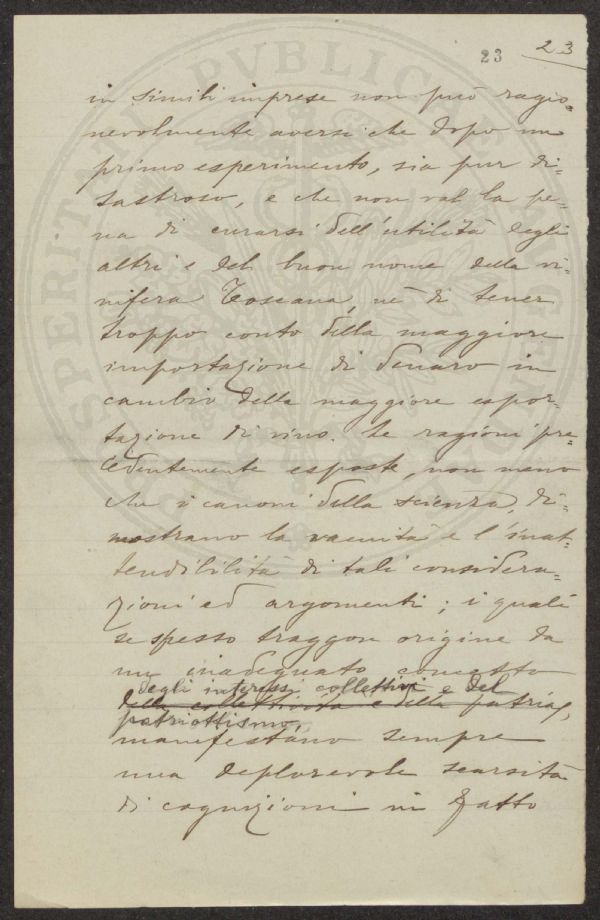 PROSPERITATI PVBLICAE AVGENDAE
23 23
in simili imprese non può ragio=
nevolmente aversi che dopo un
primo esperimento, sia pur di=
sastroso, e che non val la pe=
na di curarsi dell'utilità degli
altri e del buon nome della vi=
nifera Toscana, nè di tener
troppo conto della maggiore
importazione di denaro in
cambio della maggiore espor=
tazione di vino. Le ragioni pre=
cedentemente esposte, non meno
che i canoni della scienza, di=
mostrano la vacuità e l'inat=
tendibilità di tali considera=
zioni ed argomenti; i quali
se spesso traggon origine da
un inadeguato concetto
degli interessi collettivi e del
della collettività e della patria,
patriottismo,
manifestano sempre
una deplorevole scarsità
di cognizioni in fatto